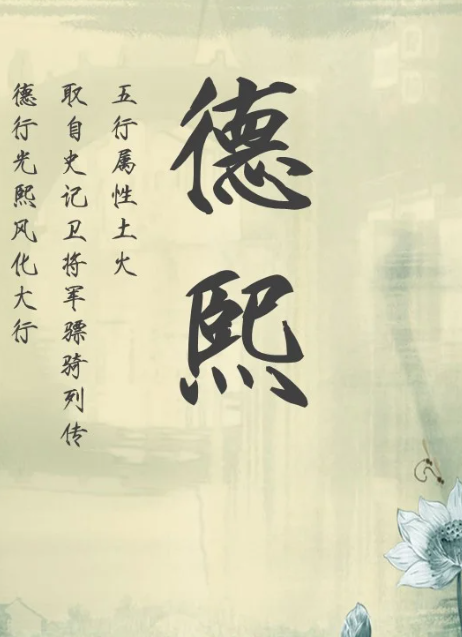 德熙
五行属性土火
取自史记卫将军骠骑列传
德行光熙风化大行